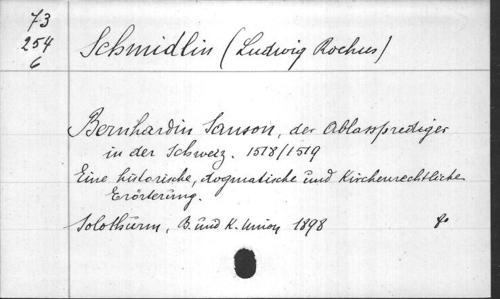 73
254
6
Schmidlin (Ludwig Rochus)
Bernhardin Sanson, der Ablassprediger
in der Schweiz. 1518/1519
Eine historische, dogmatische und Kirchenrechtliche
Erörterung.
Solothurn, B. und K. Union 1898